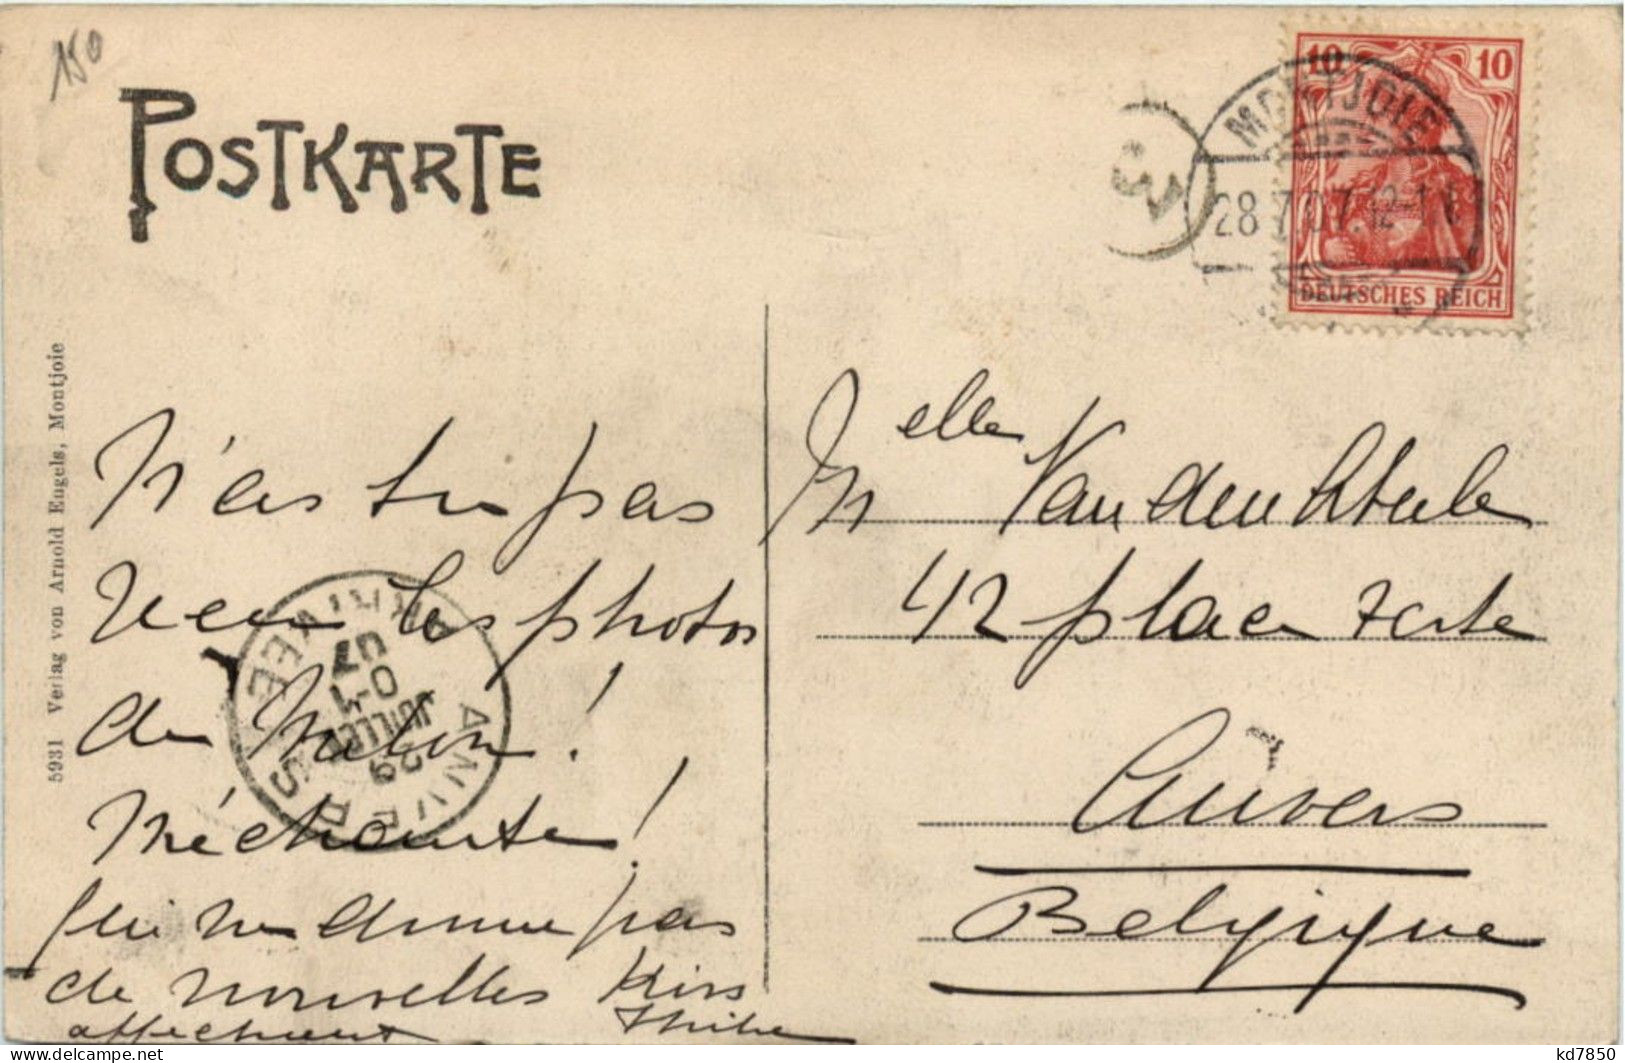 150
POSTKARTE
10 10
MONTJOIE
28.7.07.12-1
DEUTSCHES REICH
3
5931 Verlag von Arnold Engels, Montjoie
Melle Van den
42 place verte
Anvers
Belgique
N'as tu pas
les photos
de !
Méchante!
qui ne donne pas
de nouvelles Kiss
affectueux
ANVERS
ARRIVÉE
29
JUILLET
0-1
07
kd7850